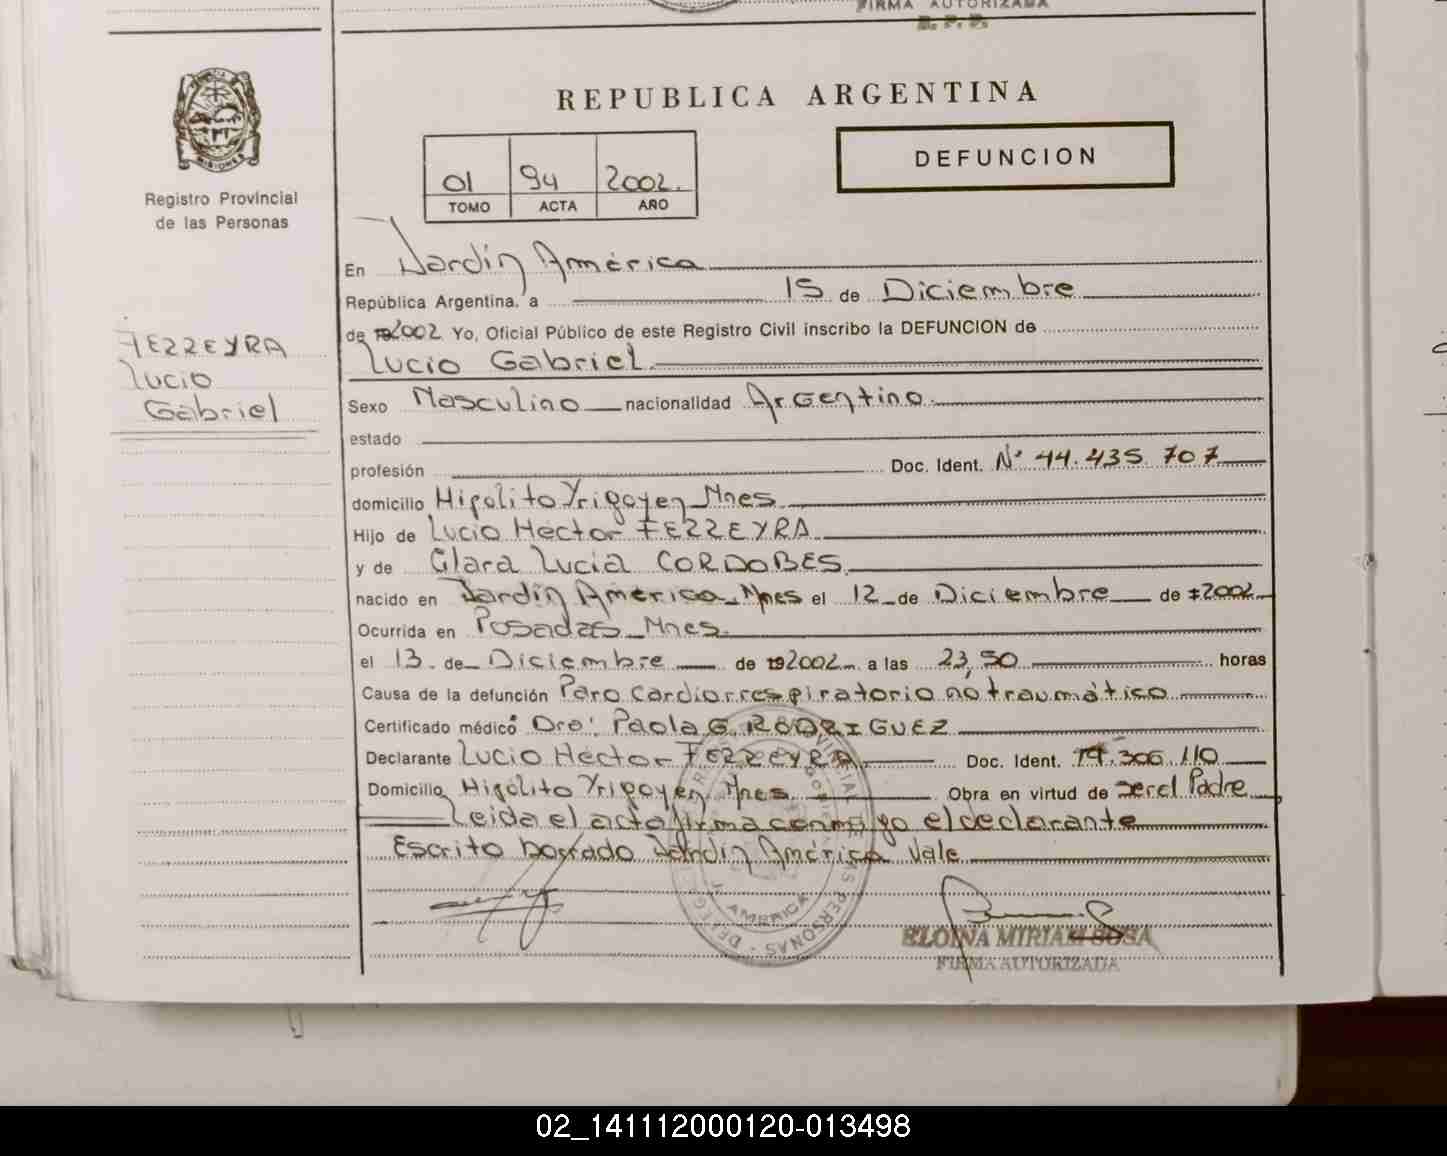 FIRMA AUTORIZADA
REPUBLICA ARGENTINA
01 94 2002.
TOMO ACTA AÑO
DEFUNCION
MISIONES
Registro Provincial
de las Personas
FERREYRA
Lucio
Gabriel
En Jardín América
República Argentina, a 15 de Diciembre
de 192002 Yo, Oficial Público de este Registro Civil inscribo la DEFUNCION de
Lucio Gabriel
Sexo Masculino nacionalidad Argentino
estado
profesión Doc. Ident. Nº 44.435.707
domicilio Hipolito Yrigoyen Mnes
Hijo de Lucio Héctor FERREYRA
y de Clara Lucia CORDOBES
nacido en Jardín América Mnes el 12 de Diciembre de 2002
Ocurrida en Posadas Mnes.
el 13 de Diciembre de 192002 a las 23,50 horas
Causa de la defunción Paro cardiorrespiratorio no traumático
Certificado médico Dra: Paola G. RODRIGUEZ
Declarante Lucio Héctor FERREYRA Doc. Ident. 14.306.110
Domicilio Hipólito Yrigoyen Mnes Obra en virtud de ser el Padre
Leida el acta firma conmigo el declarante
Escrito borrado Jardín América Vale
J. AMERICA
ELOINA MIRIAM SOSA
FIRMA AUTORIZADA
02_141112000120-013498